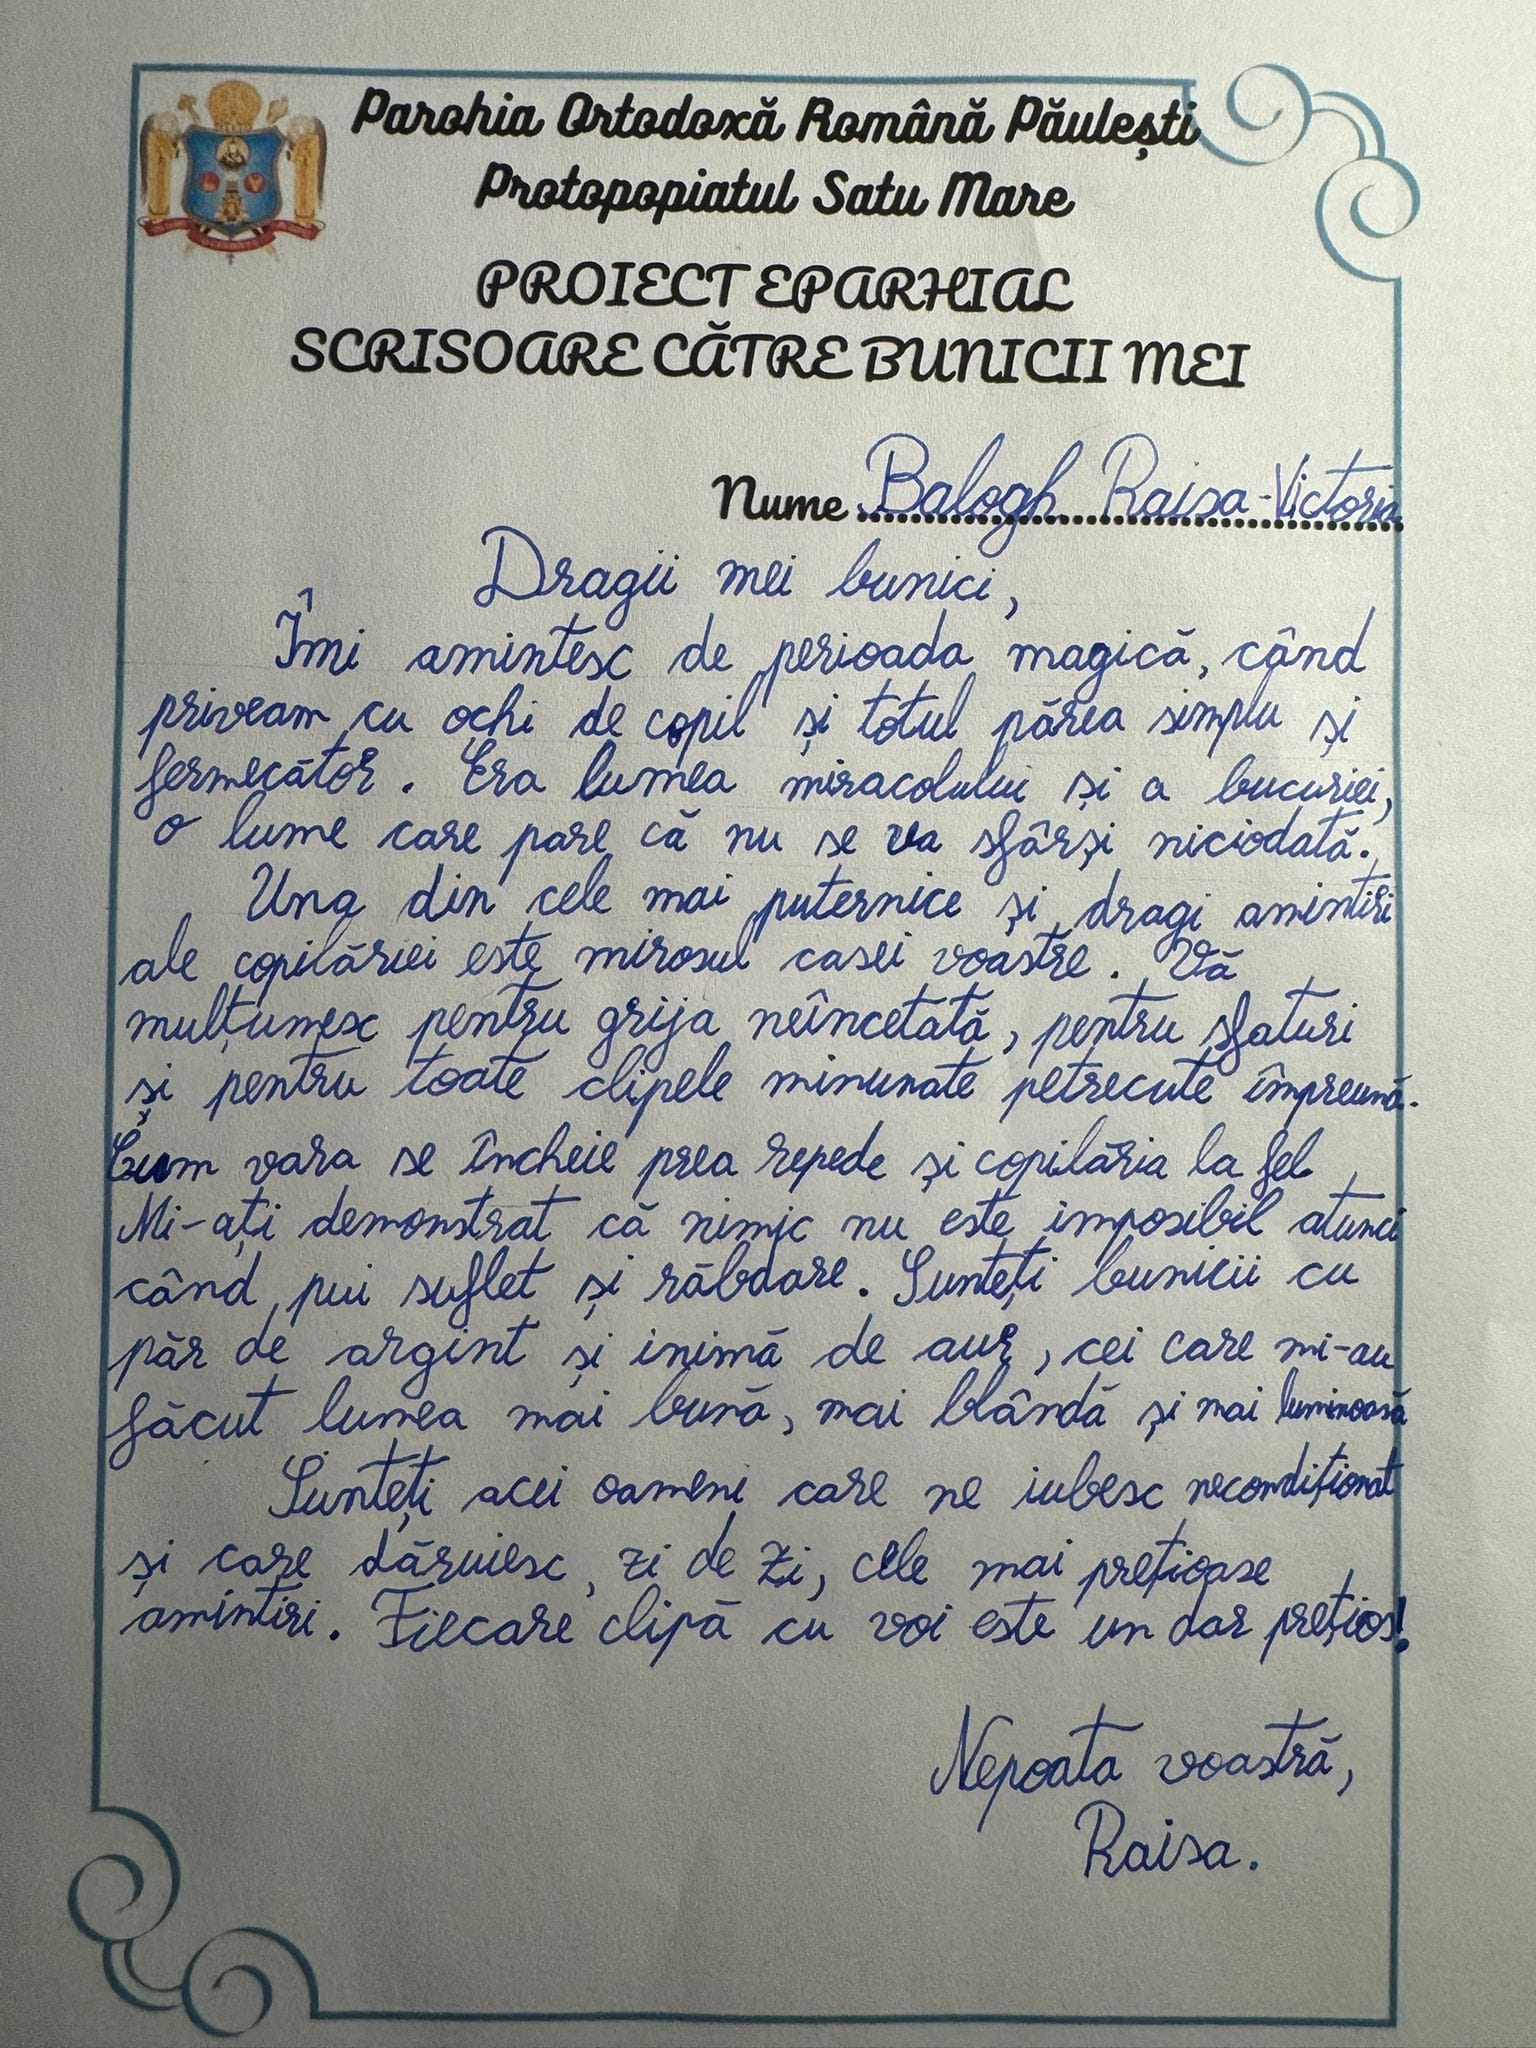 Parohia Ortodoxă Română Păulești
Protopopiatul Satu Mare
PROIECT EPARHIAL
SCRISOARE CĂTRE BUNICII MEI
Nume Balogh Raisa-Victoria
Dragii mei bunici,
Îmi amintesc de perioada magică, când
priveam cu ochi de copil și totul părea simplu și
fermecător. Era lumea miracolului și a bucuriei,
o lume care pare că nu se va sfârși niciodată.
Una din cele mai puternice și dragi amintiri
ale copilăriei este mirosul casei voastre. Vă
mulțumesc pentru grija neîncetată, pentru sfaturi
și pentru toate clipele minunate petrecute împreună.
Cum vara se încheie prea repede și copilăria la fel.
Mi-ați demonstrat că nimic nu este imposibil atunci
când pui suflet și răbdare. Sunteți bunicii cu
păr de argint și inimă de aur, cei care mi-au
făcut lumea mai bună, mai blândă și mai luminoasă
Sunteți acei oameni care ne iubesc necondiționat
și care dăruiesc, zi de zi, cele mai prețioase
amintiri. Fiecare clipă cu voi este un dar prețios!
Nepoata voastră,
Raisa.